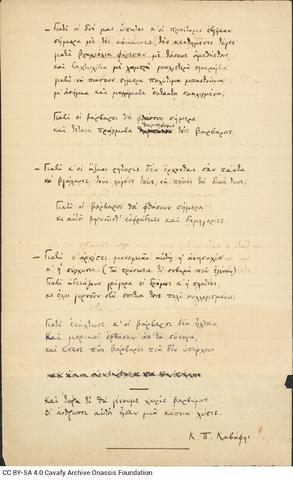 — Γιατί οι δυό μας ύπατοι κ' οι πραίτορες εβγήκαν
σήμερα με τες κόκκινες, τες κεντημένες τόγες·
γιατί βραχιόλια φόρεσαν με τόσους αμεθύστους,
και δαχτυλίδια με λαμπρά γυαλιστερά σμαράγδια·
γιατί να πιάσουν σήμερα πολύτιμα μπαστούνια
μ' ασήμια και μαλάματα έκτακτα σκαλιγμένα;
Γιατί οι βάρβαροι θα φθάσουν σήμερα·
θαμπόνουν
και τέτοια πράγματα τους βαρβάρους.
— Γιατί κ' οι άξιοι ρήτορες δεν έρχονται σαν πάντα
να βγάλουνε τους λόγους τους, να πούνε τα δικά τους;
Γιατί οι βάρβαροι θα φθάσουν σήμερα·
κι αυτοί βαρυούντ' ευφράδειες και δημηγορίες.
— Γιατί ν' αρχίσει μονομιάς αυτή η ανησυχία
κ' η σύγχυσις. (Τα πρόσωπα τι σοβαρά που έγιναν).
Γιατί αδειάζουν γρήγορα οι δρόμοι κ' η πλατέες,
κι όλοι γυρνούν στα σπίτια τους πολύ συλλογισμένοι;
Γιατί ενύχτωσε κ' οι βάρβαροι δεν ήλθαν.
Και μερικοί έφθασαν απ' τα σύνορα,
και είπανε πως βάρβαροι πια δεν υπάρχουν.
Και τώρα τι θα γένουμε χωρίς βαρβάρους.
Οι άνθρωποι αυτοί ήσαν μιά κάποια λύσις.
Κ. Π. Καβάφης
CC BY-SA 4.0 Cavafy Archive Onassis Foundation